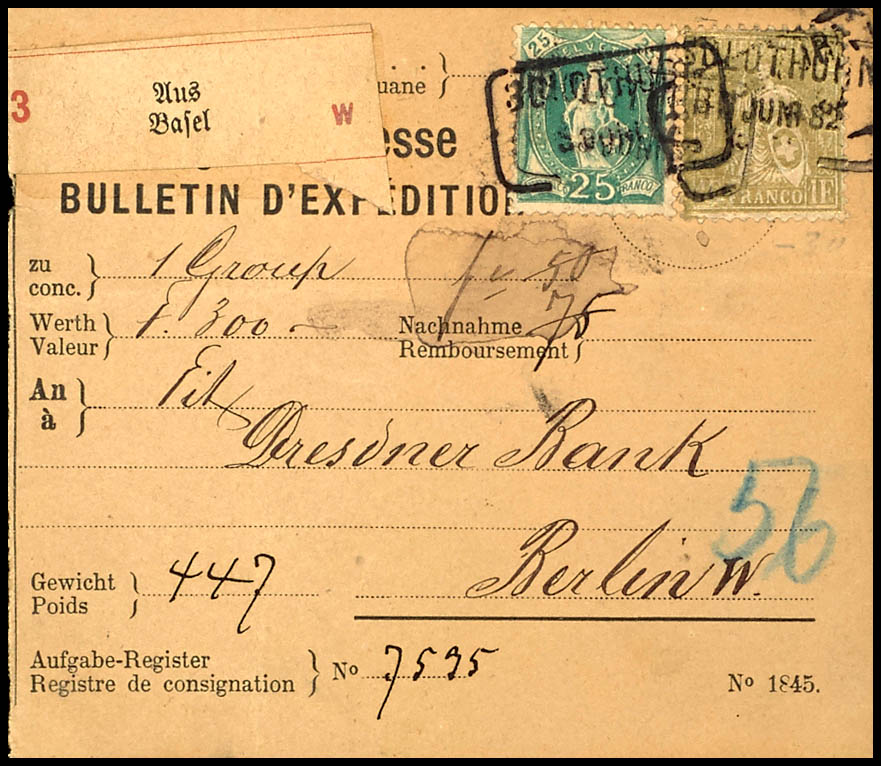 3 Aus Basel W
uane
esse
BULLETIN D'EXPÉDITION
25 HELVE
25 FRANCO
SOLOTHURN
SOLOTHURN
JUNI 82
FRANCO 1F
zu
conc. 1 Group
Werth
Valeur f. 300
Nachnahme
Remboursement 75
An
à Tit
Dresdner Bank
56
Berlin W.
Gewicht
Poids 447
Aufgabe-Register
Registre de consignation No 7535
No 1845.